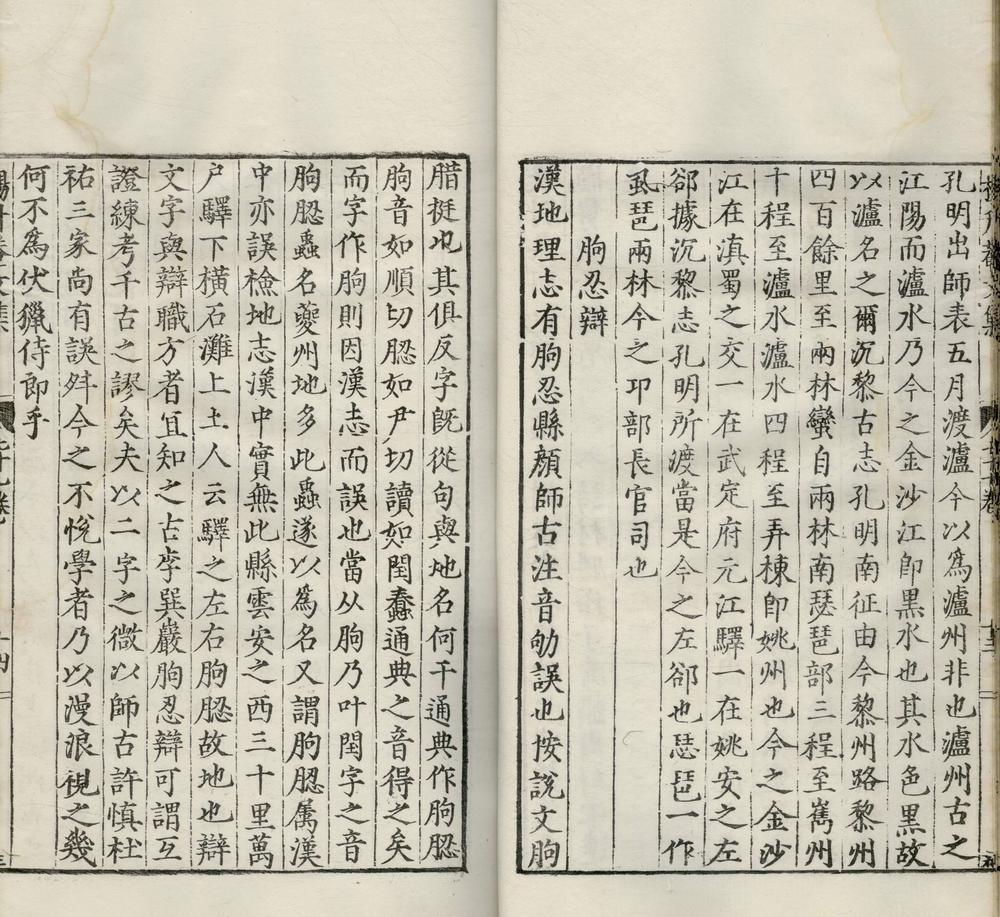 孔明出師表五月渡瀘今以為瀘州非也瀘州古之
江陽而瀘水乃今之金沙江即黒水也其水色黒故
以瀘名之爾沉黎古志孔明南征由今黎州路黎州
四百餘里至兩林蠻自兩林南瑟琶部三程至嶲州
十程至瀘水瀘水四程至弄棟即姚州也今之金沙
江在滇蜀之交一在武定府元江驛一在姚安之左
郤據沉黎志孔明所渡當是今之左郤也瑟琶一作
虱琶兩林今之邛部長官司也
朐忍辯
漢地理志有朐忍縣顔師古注音劬誤也按說文朐
腊挺也其俱反字既從句與地名何干通典作朐䏰
朐音如順切䏰如尹切讀如閏蠢通典之音得之矣
而字作朐則因漢志而誤也當从朐乃叶閏字之音
朐䏰蟲名夔州地多此蟲遂以為名又謂朐䏰属漢
中亦誤檢地志漢中實無此縣雲安之西三十里萬
户驛下橫石灘上土人云驛之左右朐䏰故地也辯
文字與辯職方者宜知之古李巽巖朐忍辯可謂互
證練考千古之謬矣夫以二字之微以師古許慎杜
祐三家尚有誤舛今之不恱學者乃以漫浪視之幾
何不為伏獵侍郎乎